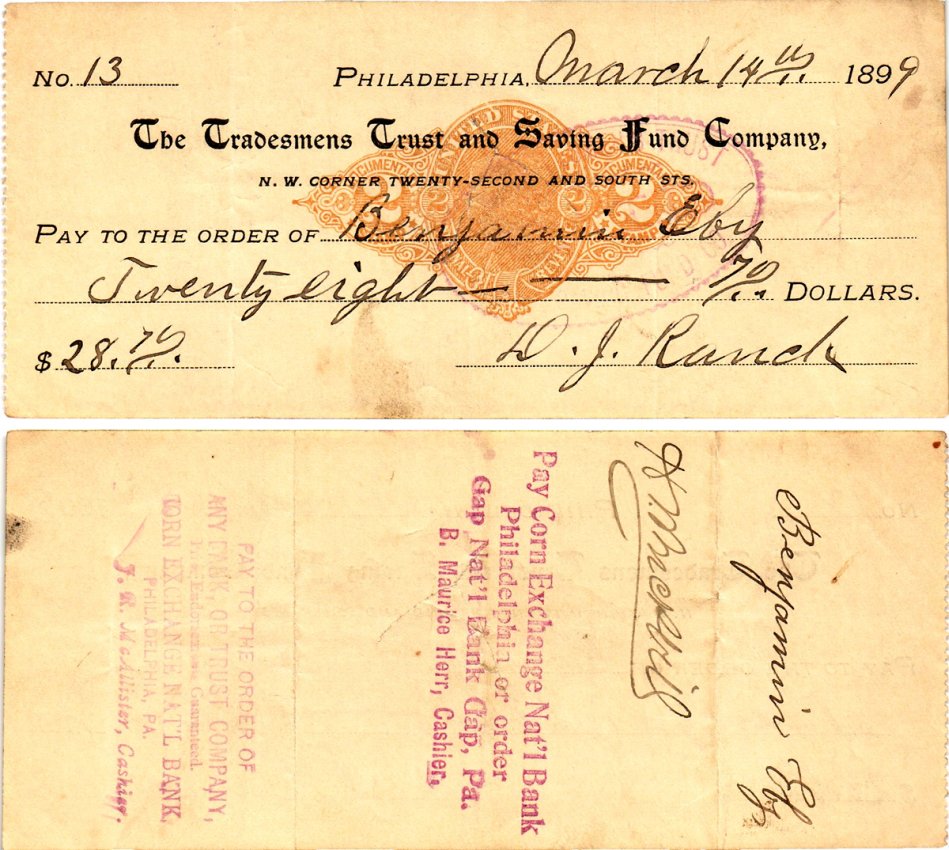 No. 13 PHILADELPHIA, March 14th 1899
The Tradesmens Trust and Saving Fund Company,
N. W. CORNER TWENTY-SECOND AND SOUTH STS.
PAY TO THE ORDER OF Benjamin Eby
Twenty eight — — 70/.. DOLLARS.
$ 28.70/..
D. J. Ranck
2 2 2 2
TRUST
Benjamin Eby
Pay Corn Exchange Nat'l Bank
Philadelphia or order
Gap Nat'l Bank Gap, Pa.
B. Maurice Herr, Cashier,
PAY TO THE ORDER OF
ANY BANK, OR TRUST COMPANY,
Prev. Endorsements Guaranteed.
CORN EXCHANGE NAT'L BANK,
PHILADELPHIA, PA.
J. R. McAllister, Cashier.